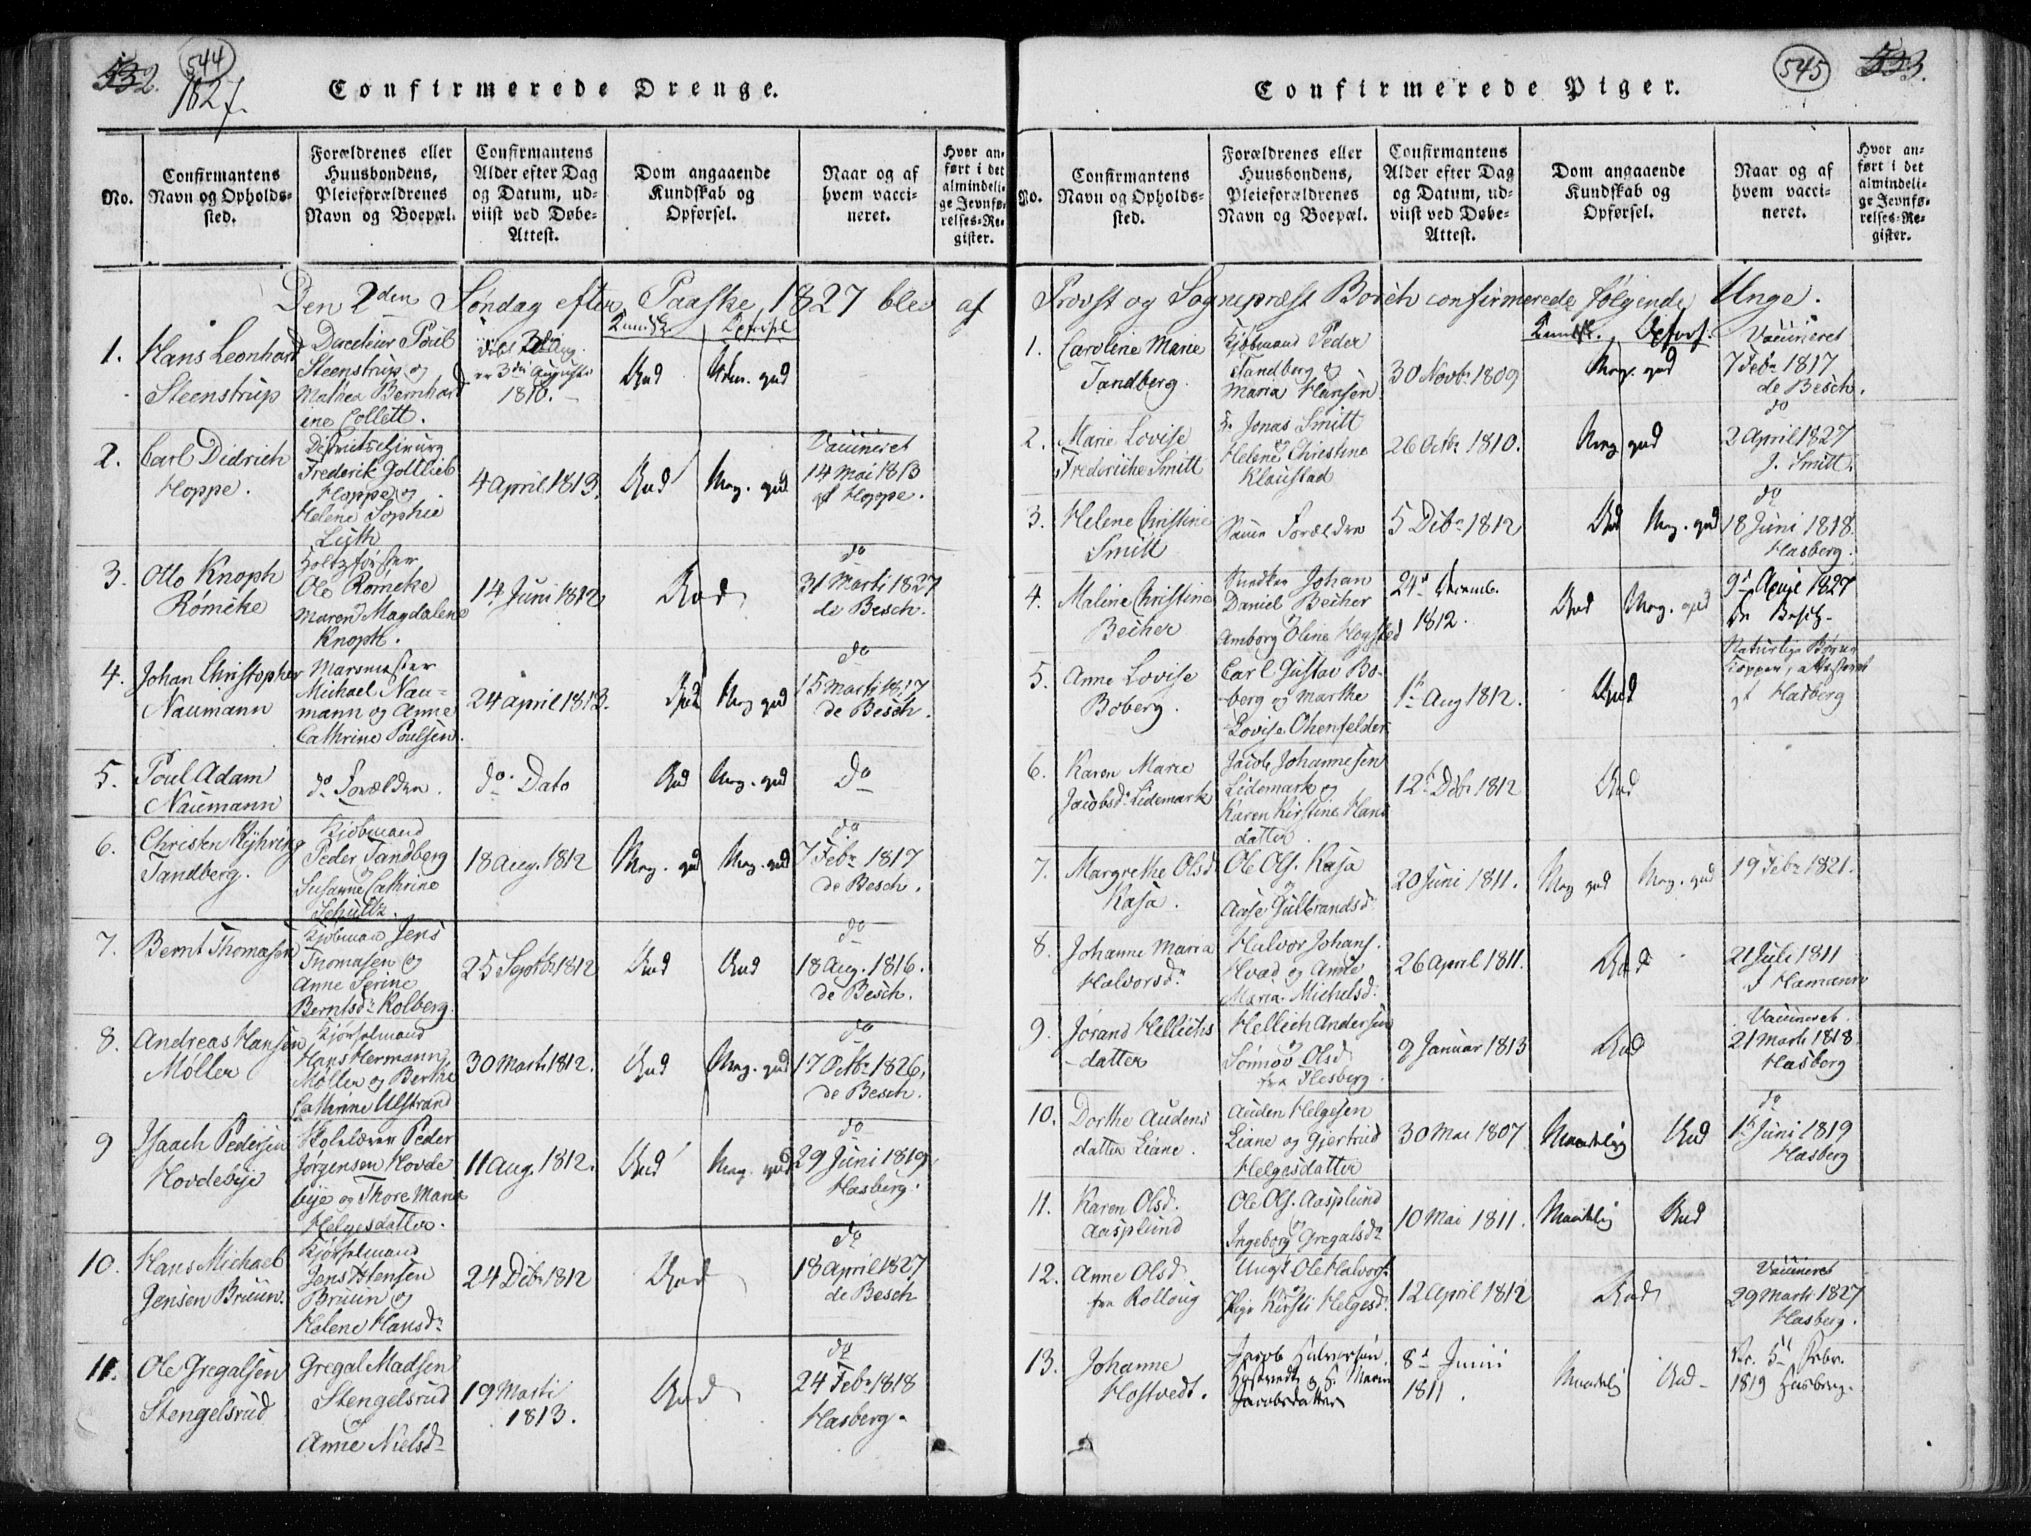 532.
544
1827.
Confirmerede Drenge.
No.
Confirmantens
Navn og Opholds-
sted.
Forældrenes eller
Huusbondens,
Pleieforældrenes
Navn og Boepæl.
Confirmantens
Alder efter Dag
og Datum, ud-
viist ved Døbe-
Attest.
Dom angaaende
Kundskab og
Opførsel.
Naar og af
hvem vacci-
neret.
Hvor an-
ført i det
almindeli-
ge Jevnfø-
relses-Re-
gister.
Den 2den Søndag efter Paaske 1827 blev af
1.
Hans Leonhard
Steenstrup
Directeur Poul
Steenstrup og
Mathea Bernhard
ine Collett.
er 3die August
1810.
Gud
Udm. gud
2.
Carl Didrich
Hoppe.
Districtschirurg
Frederik Gottlieb
Hoppe og
Helene Sophie
Lÿth
4 April 1813.
Gud
Meg. gud
Vaccineret
14 Mai 1813
af Hoppe.
3.
Otto Knoph
Römcke
Holtzførster
Ole Römcke
Maren Magdalene
Knoph.
14 Juni 1812
God
do
31 Marti 1827
de Besch.
4.
Johan Christopher
Naumann
Marsmester
Michael Nau-
mann og Anne
Cathrine Poulsen.
24 April 1813.
Meg gud
do
15 Marti 1817
de Besch.
5.
Poul Adam
Naumann
do Forældre.
do Dato
Gud
Meg. gud
do
6.
Christen Kÿhring
Tandberg.
Kjøbmand
Peder Tandberg
og
Susanne Cathrine
Schultz.
18 Aug. 1812
Meg. gud
Meg. gud
do
7 Febr 1817
de Besch.
7.
Bernt Thomasen
Kjøbmand Jens
Thomasen og
Anne Serine
Berntsdr Kolberg.
25 Septbr 1812
Gud
Gud
do
18 Aug. 1816.
de Besch.
8.
Andreas Hansen
Möller
Kjørselmand
Hans Hermann
Möller og Berthe
Cathrine Ulstrand
30 Marti 1812.
Gud
Meg. gud
do
17 Octbr 1826,
de Besch.
9
Isaach Pedersen
Hovdebÿe
Skolelærer Peder
Jörgensen Hovde
bÿe og Thore Maria
Helgesdatter.
11 Aug. 1812.
Gud
Meg. gud
do
29 Juni 1819
Hasberg.
10.
Hans Michael
Jensen Bruun.
Kjørselmand
Jens Stensen
Bruun og
Helene Hansdr
24 Dcbr 1812
God
do
18 April 1827
de Besch
11.
Ole Gregalsen
Stengelsrud
Gregal Madsen
Stengelsrud
og
Anne Nielsd
19 Marti
1813.
God
do
24 Febr 1818
Hasberg.
Confirmerede Piger.
545
533.
No.
Confirmantens
Navn og Opholds-
sted.
Forældrenes eller
Huusbondens,
Pleieforældrenes
Navn og Boepæl.
Confirmantens
Alder efter Dag
og Datum, ud-
viist ved Døbe-
Attest.
Dom angaaende
Kundskab og
Opførsel.
Naar og af
hvem vacci-
neret.
Hvor an-
ført i det
almindeli-
ge Jevnfø-
relses-Re-
gister.
Provst og Sognepræst Borch confirmerede følgende Unge.
1.
Caroline Marie
Tandberg.
Kjøbmand Peder
Tandberg og
Maria Hansen
30 Novbr 1809
Meg. gud
Vaccineret
7 Febr 1817
de Besch.
2.
Marie Lovise
Frederiche Smitt
Hr Jonas Smitt
og
Helene Christine
Klaustad
26 Octbr 1810.
Meg gud
do
2 April 1827
J. Smitt.
3.
Helene Christine
Smitt
Samme Forældre
5 Dcbr 1812
Gud
Meg. gud
do
18 Juni 1818.
Hasberg.
4.
Maline Christine
Becher
Johan
Daniel Becher
og
Amborg Eline Hogsted
24d Decemb.
1812.
God
Meg. god
9d April 1827
de Besch.
5.
Anne Lovise
Boberg.
Carl Gustav Bo-
berg og Marthe
Lovise Ohenfelder
1st Aug 1812.
Gud
Naturlige Børne
Kopper, attesteret
af Hasberg
6.
Karen Marie
Jacobsdr Lidemark
Jacob Johannesen
Lidemark og
Karen Kirstine Hans
datter
12t Dcbr 1812
Gud
7.
Margrethe Olsd.
Kasa.
Ole Ols. Kasa
og
Aase Gulbrandsd.
20 Juni 1811.
Meg gud
Meg. gud
19 Febr 1821.
8.
Johanne Maria
Halvorsdr
Halvor Johans.
Hvad og Anne
Maria Michelsd.
26 April 1811.
God
21 Juli 1811
J Hamann
9.
Jörand Hellichs
datter
Hellich Andersen
og
Sönnov Olsd.
fra Flesberg.
2 Januar 1813
God
Vaccineret.
21 Marti 1818
Hasberg
10.
Dorthe Audens
datter Liane.
Auden Helgesen
Liane og Gjertrud
Helgesdatter
30 Mai 1807
Maadelig
Gud
do
15 Juni 1819
Hasberg
11.
Karen Olsd.
Aasplund
Ole Ols. Aasplund
og
Ingeborg Gregalsdr
10 Mai 1811.
Maadelig
Gud
12.
Anne Olsd
fra Rolloug
Ungk Ole Halvors.
og
Pige Kirsti Helgesd.
12 April 1812
God
Vaccineret
29 Marti 1827
Hasberg.
13.
Johanne
Hostvedt.
Jacob Halvorsen
Hostvedt og
Jacobsdatter
8d Junii
1811.
Maadelig
Gud
5d Febr.
1819 Hasberg.